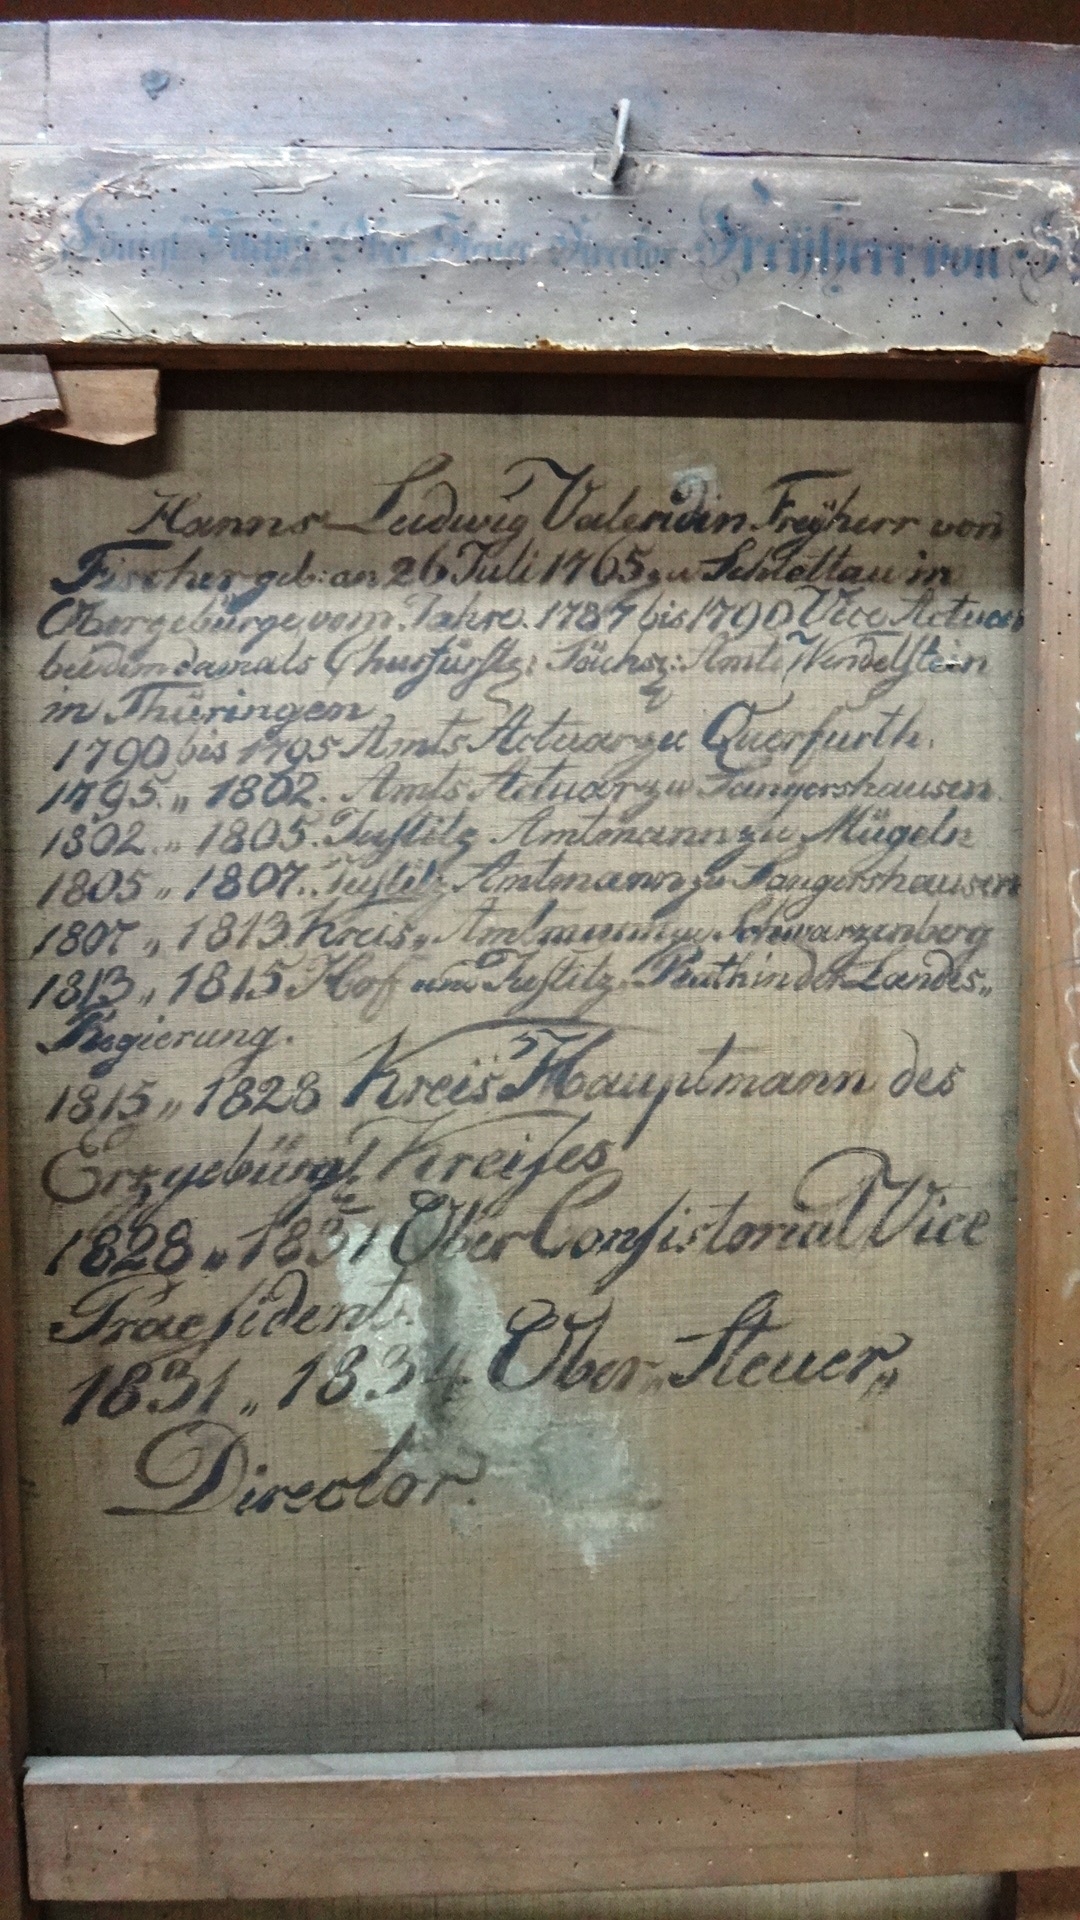 Königl. Sächß. Ober Steuer Director Freyherr von
Hanns Ludwig Valendin Freÿherr von
Fischer geb: an 26 Juli 1765 zu Schlettau in
Obergebürge, vom Jahre 1787 bis 1790 Vice Actuar
bei dem damals Churfürstz: Sächsz: Amte Wendelstein
in Thüringen
1790 bis 1795 Amts Actuar zu Querfurth.
1795 „ 1802. Amts Actuar zu Sangershausen.
1802 „ 1805. Justitz Amtmann zu Mügeln
1805 „ 1807. Justitz Amtmann zu Sangershausen
1807 „ 1813 Kreis„ Amtmann zu Schwarzenberg
1813 „ 1815 Hof und Justitz„ Rath in der Landes„
Regierung.
1815 „ 1828 Kreis Hauptmann des
Erzgebürg: Kreises
1828 „ 1831 Ober Consistorial Vice
Praesident.
1831 „ 1834 Ober„ Steuer„
Director.